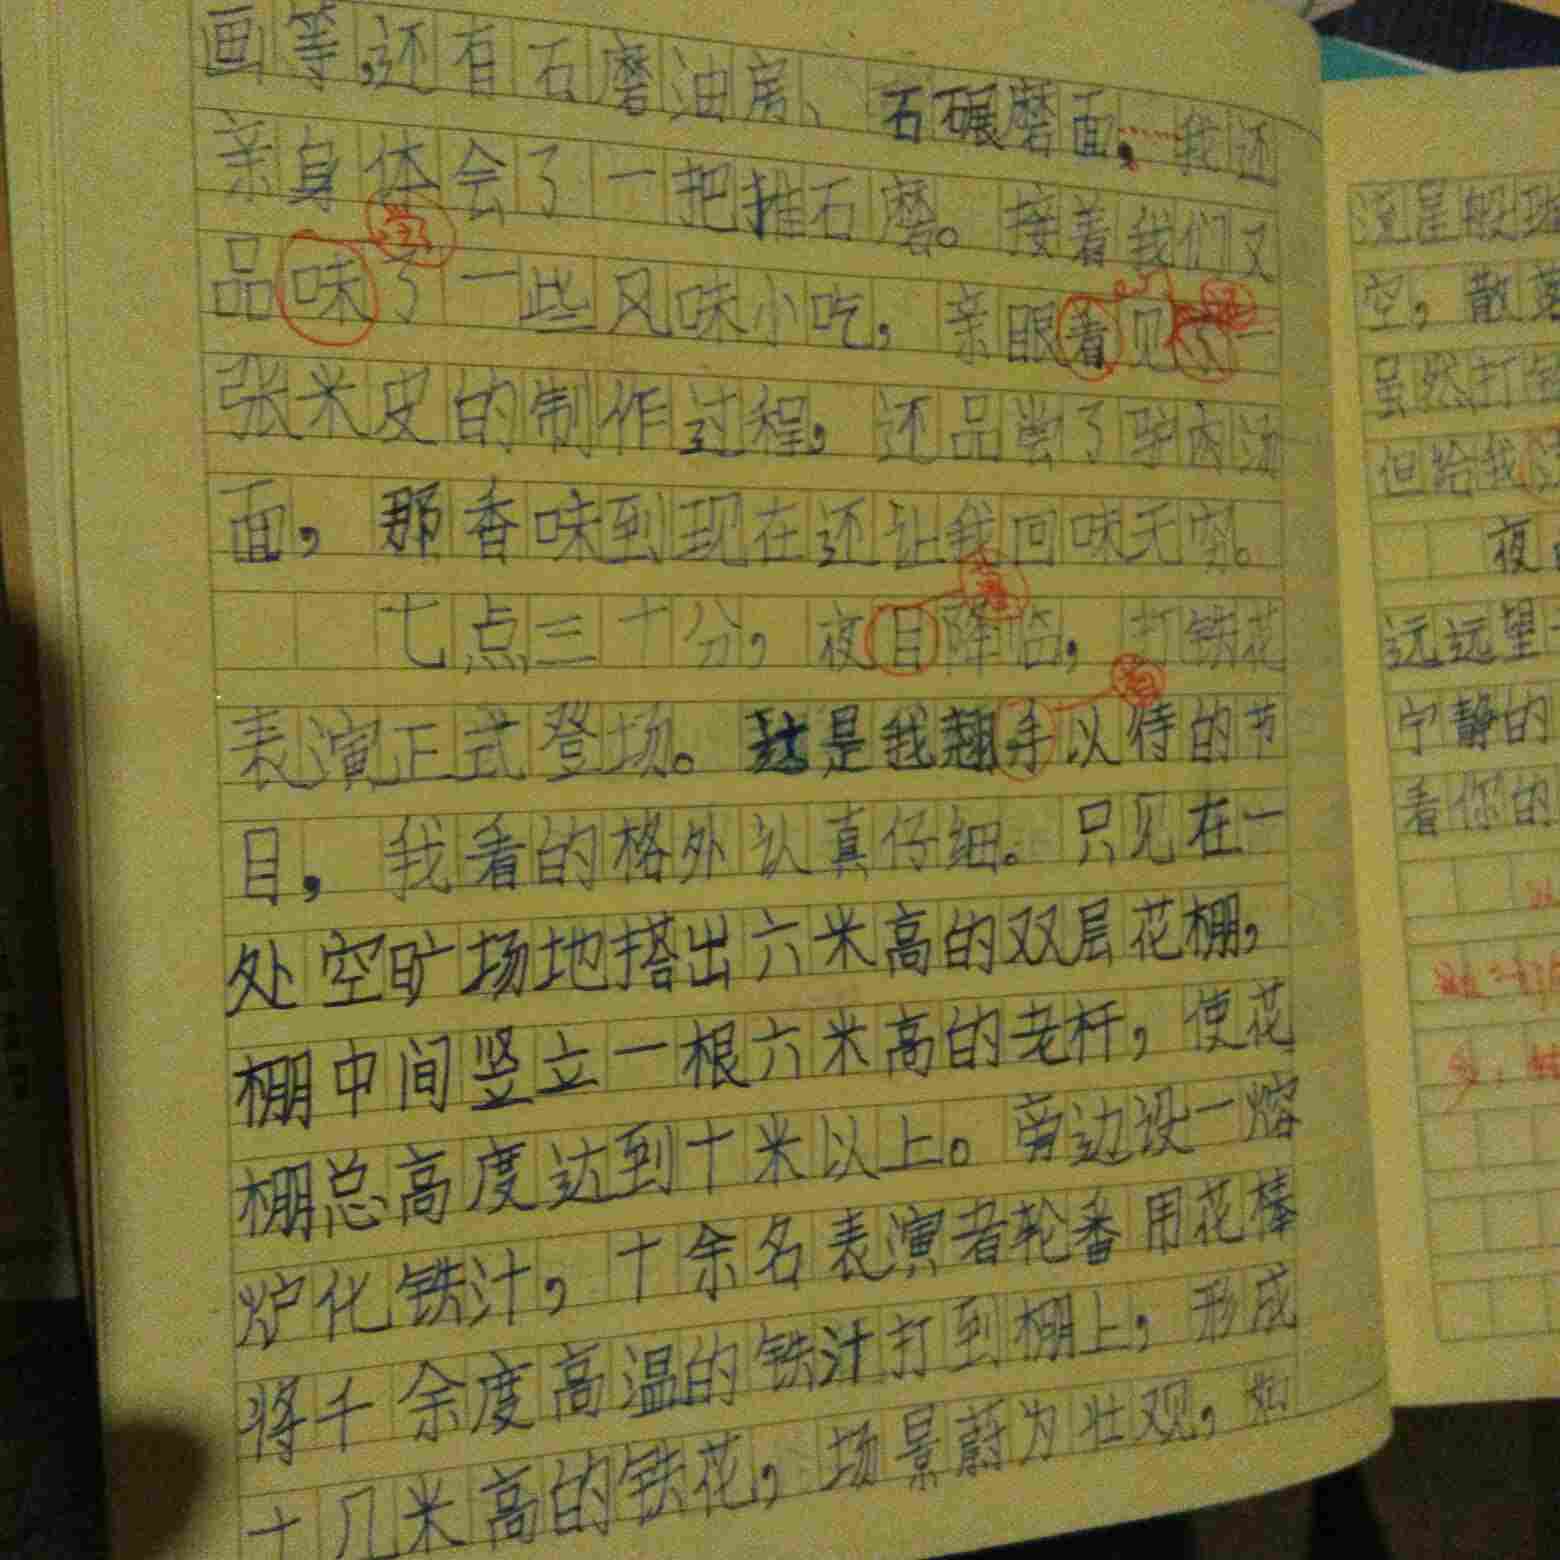 画等,还有石磨油房、石碾磨面,……我还
亲身体会了一把推石磨。接着我们又
尝
品味了一些风味小吃,亲眼看见了一
张米皮的制作过程,还品尝了驴肉汤
面,那香味到现在还让我回味无穷。
幕
七点三十分,夜目降临,打铁花
首
表演正式登场。这是我翘手以待的节
目,我看的格外认真仔细。只见在一
处空旷场地搭出六米高的双层花棚,
棚中间竖立一根六米高的老杆,使花
棚总高度达到十米以上。旁边设一熔
炉化铁汁,十余名表演者轮番用花棒
将千余度高温的铁汁打到棚上,形成
十几米高的铁花,场景蔚为壮观,如
流星般
空,散落
虽然打铁
但给我
夜
远远望
宁静的
看你的